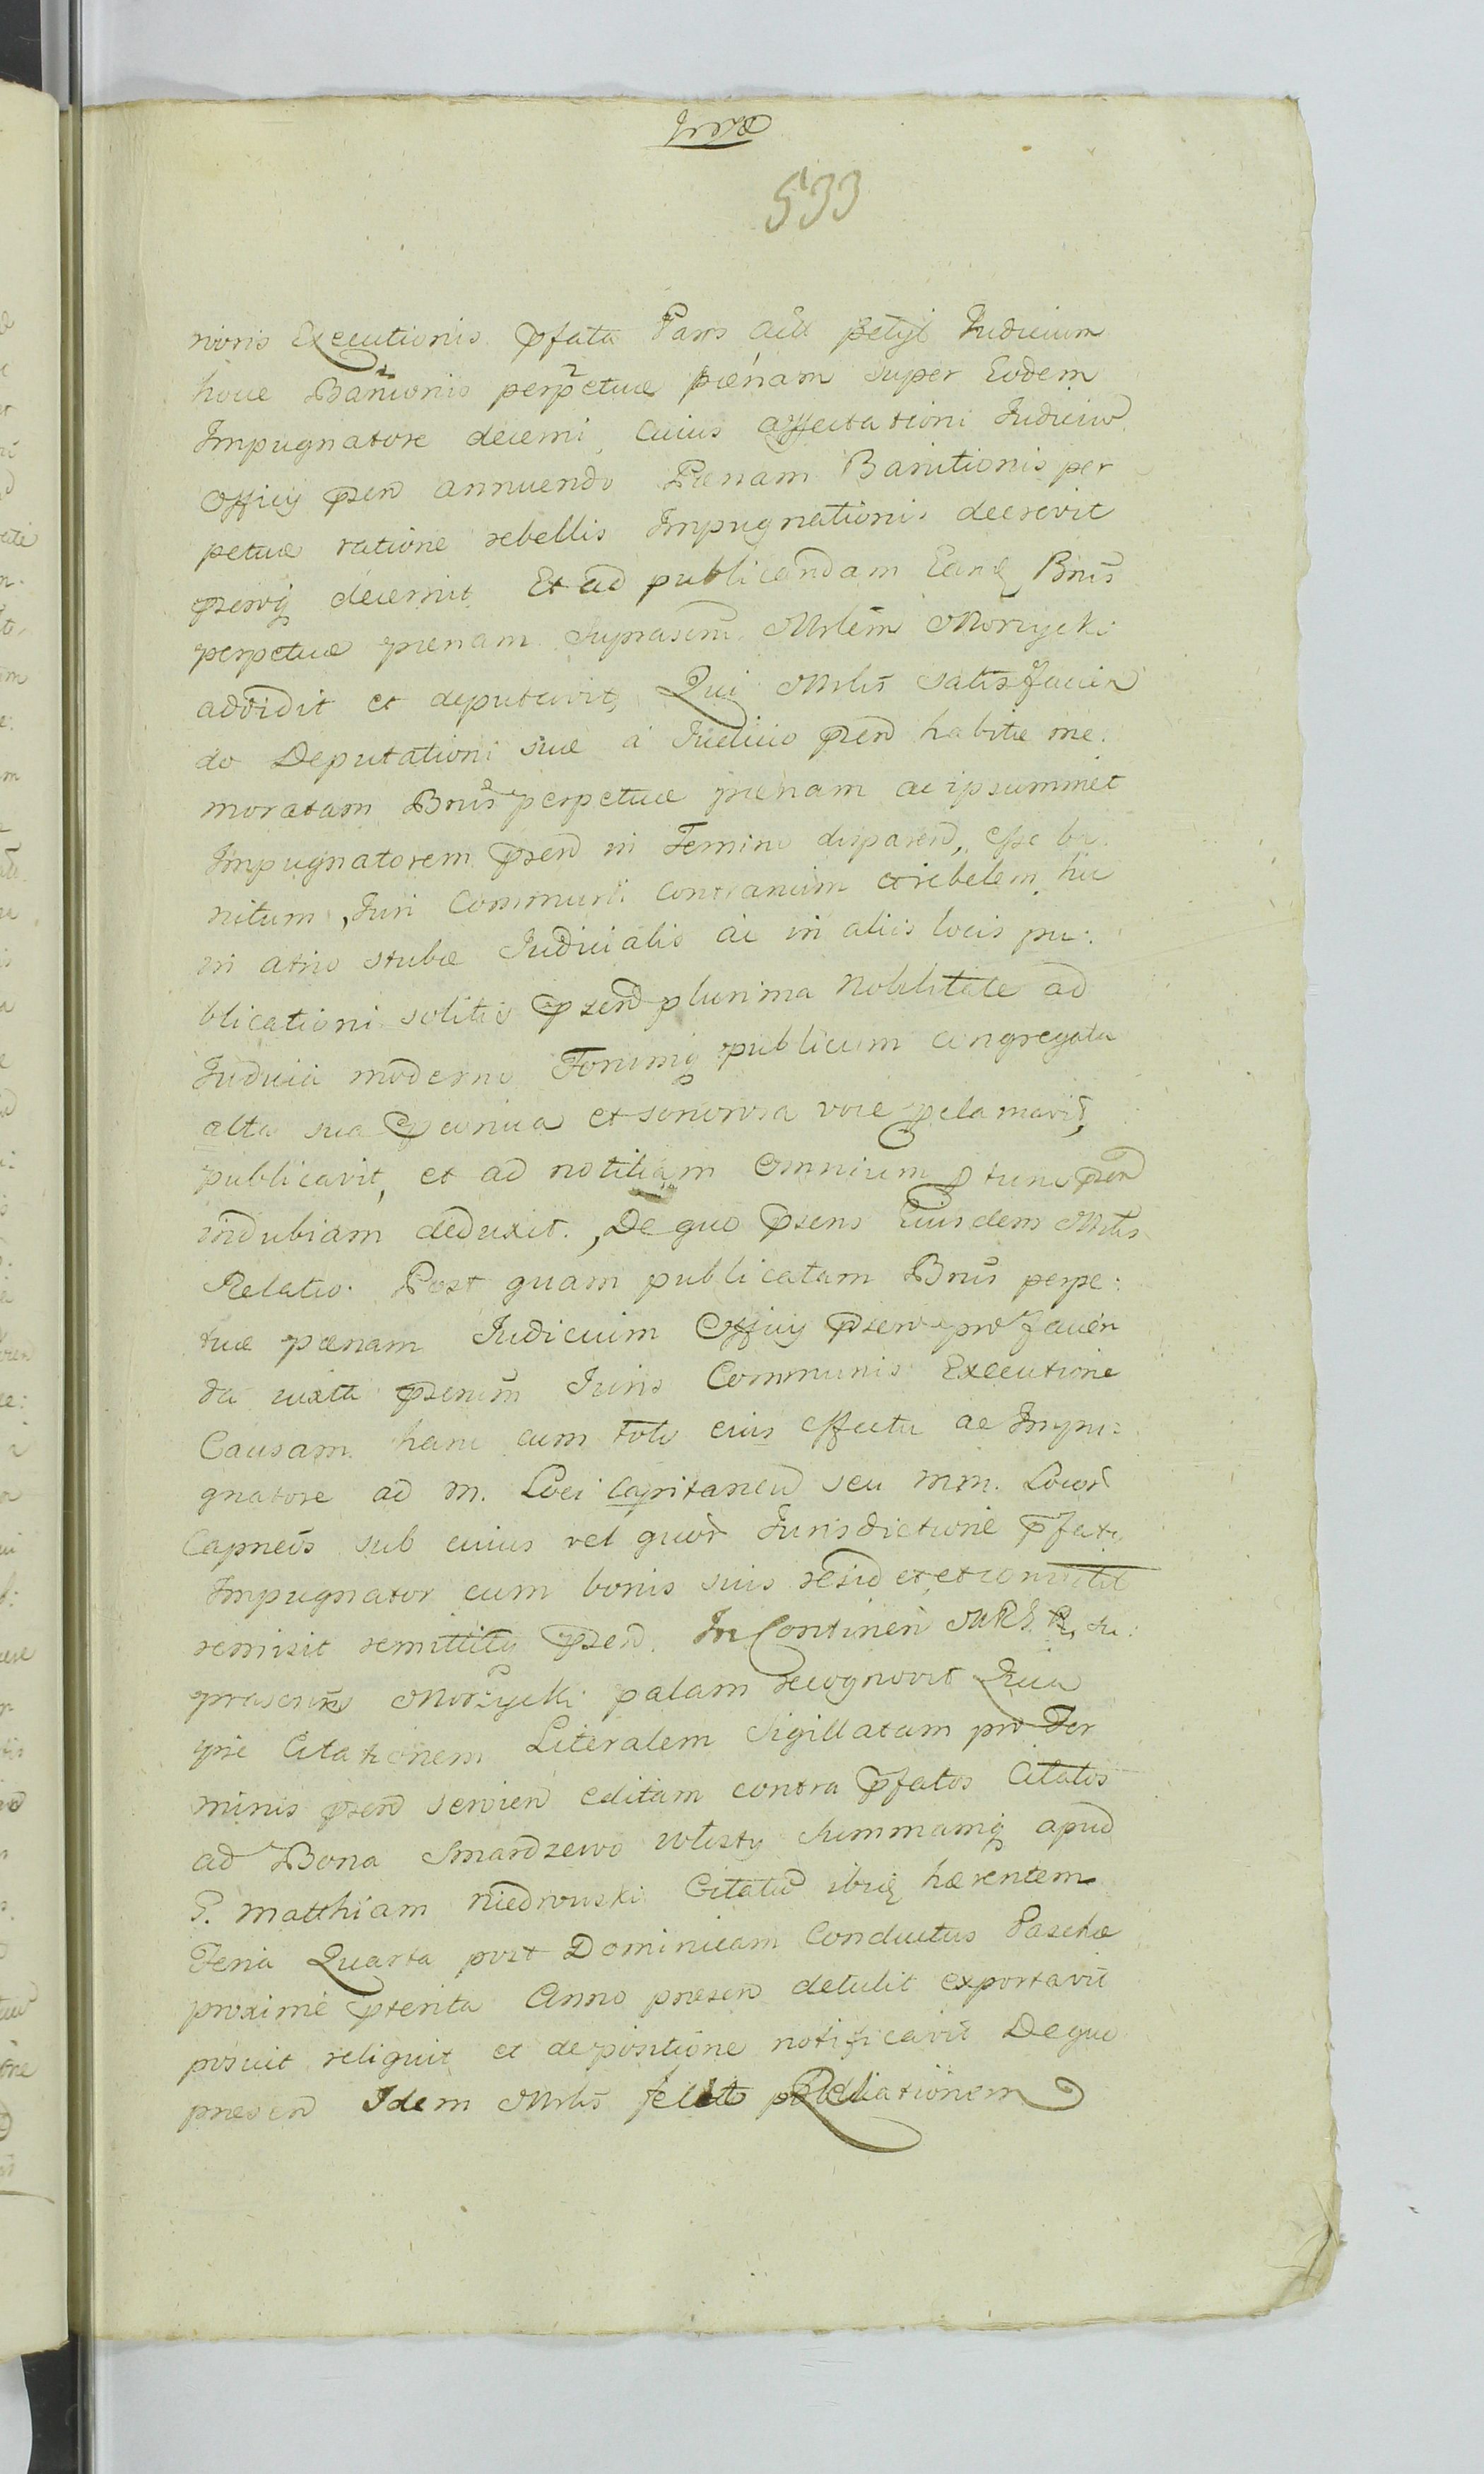 533
rioris Executionis pfata Pars Act petyt Judicium
hocce Banionis perpetuæ pœnam super Eodem
Impugnatore decerni, Cuius affectationi Judiciu
Officy psen annuendo Pœnam Banitionis per
petuæ ratione rebellis Impugnationis decrevit
psentiq decernit Et ad publicandam Eanq Bnis
perpetuæ pœnam Suprascrm Mrlem Morzycki
addidit et deputavit, Qui Mrlis satisfacien
do Deputationi suæ a Judicio psen habitæ me:
moratam Bnis perpetuæ pœnam ac ipsummet
Impugnatorem psen in Termino disparen, esse ba
nitum, Juri Communi contrarium et rebelem hic
in atrio stubæ Judicialis ac in aliis locis pu:
blicationi solitis psend plurima Nobilitate ad
Judicia moderna Forumq publicum congregata
alta sua et sonorosa voce pclamavit,
publicavit, et ad notitiam Omnium p tunc psen
indubiam deduxit. De quo psens Eiusdem Mrlis
Relatio. Post quam publicatam Bnis perpe:
tuæ pœnam Judicium Officy psens pro facien
da iuxta pscrum Juris Communis Executione
Causam hanc cum toto eius effectu ac Impu:
gnatore ad M. Loci Capitaneu seu MM. Locor
Capneos sub cuius vel quor Jurisdictione pfatu
Impugnator cum bonis suis resid et,
remisit remittitq psen. In Continen MRS. Su:
prascrus Morzycki palam recognovit Quia
ipse Citationem Literalem Sigillatam pro Ter
minis psen servien editam contra pfatos Citatos
ad Bona Smardzewo Summamq apud
G. Matthiam Citatu ibiq hærentem
Feria Quarta post Dominicam Conductus Paschæ
proxime pterita Anno præsen detulit exportavit
posuit reliquit et de positione notificavit De quo
præsen Idem Mrlis Relationem